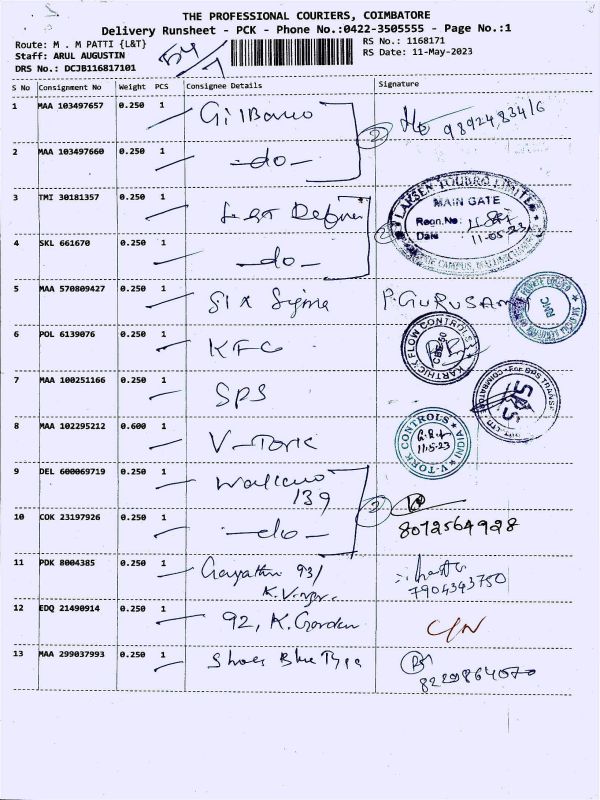 THE PROFESSIONAL COURIERS, COIMBATORE
Delivery Runsheet - PCK - Phone No.:0422-3505555 - Page No.:1
Route: M . M PATTI {L&T}
RS No.: 1168171
Staff: ARUL AUGUSTIN
RS Date: 11-May-2023
DRS No.: DCJB116817101
S No Consignment No Weight PCS Consignee Details Signature
1 MAA 103497657 0.250 1
2 MAA 103497660 0.250 1 -do-
3 TMI 30181357 0.250 1
LARSEN & TOUBRO LIMITED
MAIN GATE
Regn.No:
Date 11-05-23
4 SKL 661670 0.250 1 -do-
5 MAA 570809427 0.250 1 Six Sigma P.GURUSAMY
6 POL 6139076 0.250 1 KFC
KARTHICK FLOW CONTROLS
7 MAA 100251166 0.250 1 SPS
8 MAA 102295212 0.600 1 V-Tork
V-TORK CONTROLS INDIA
11.5.23
9 DEL 600069719 0.250 1
139
10 COK 23197926 0.250 1 -do- 2
8072564928
11 PDK 8004385 0.250 1 Gayathri 93/
7904343750
12 EDQ 21490914 0.250 1 92, K.Garden
13 MAA 299037993 0.250 1
8220864070